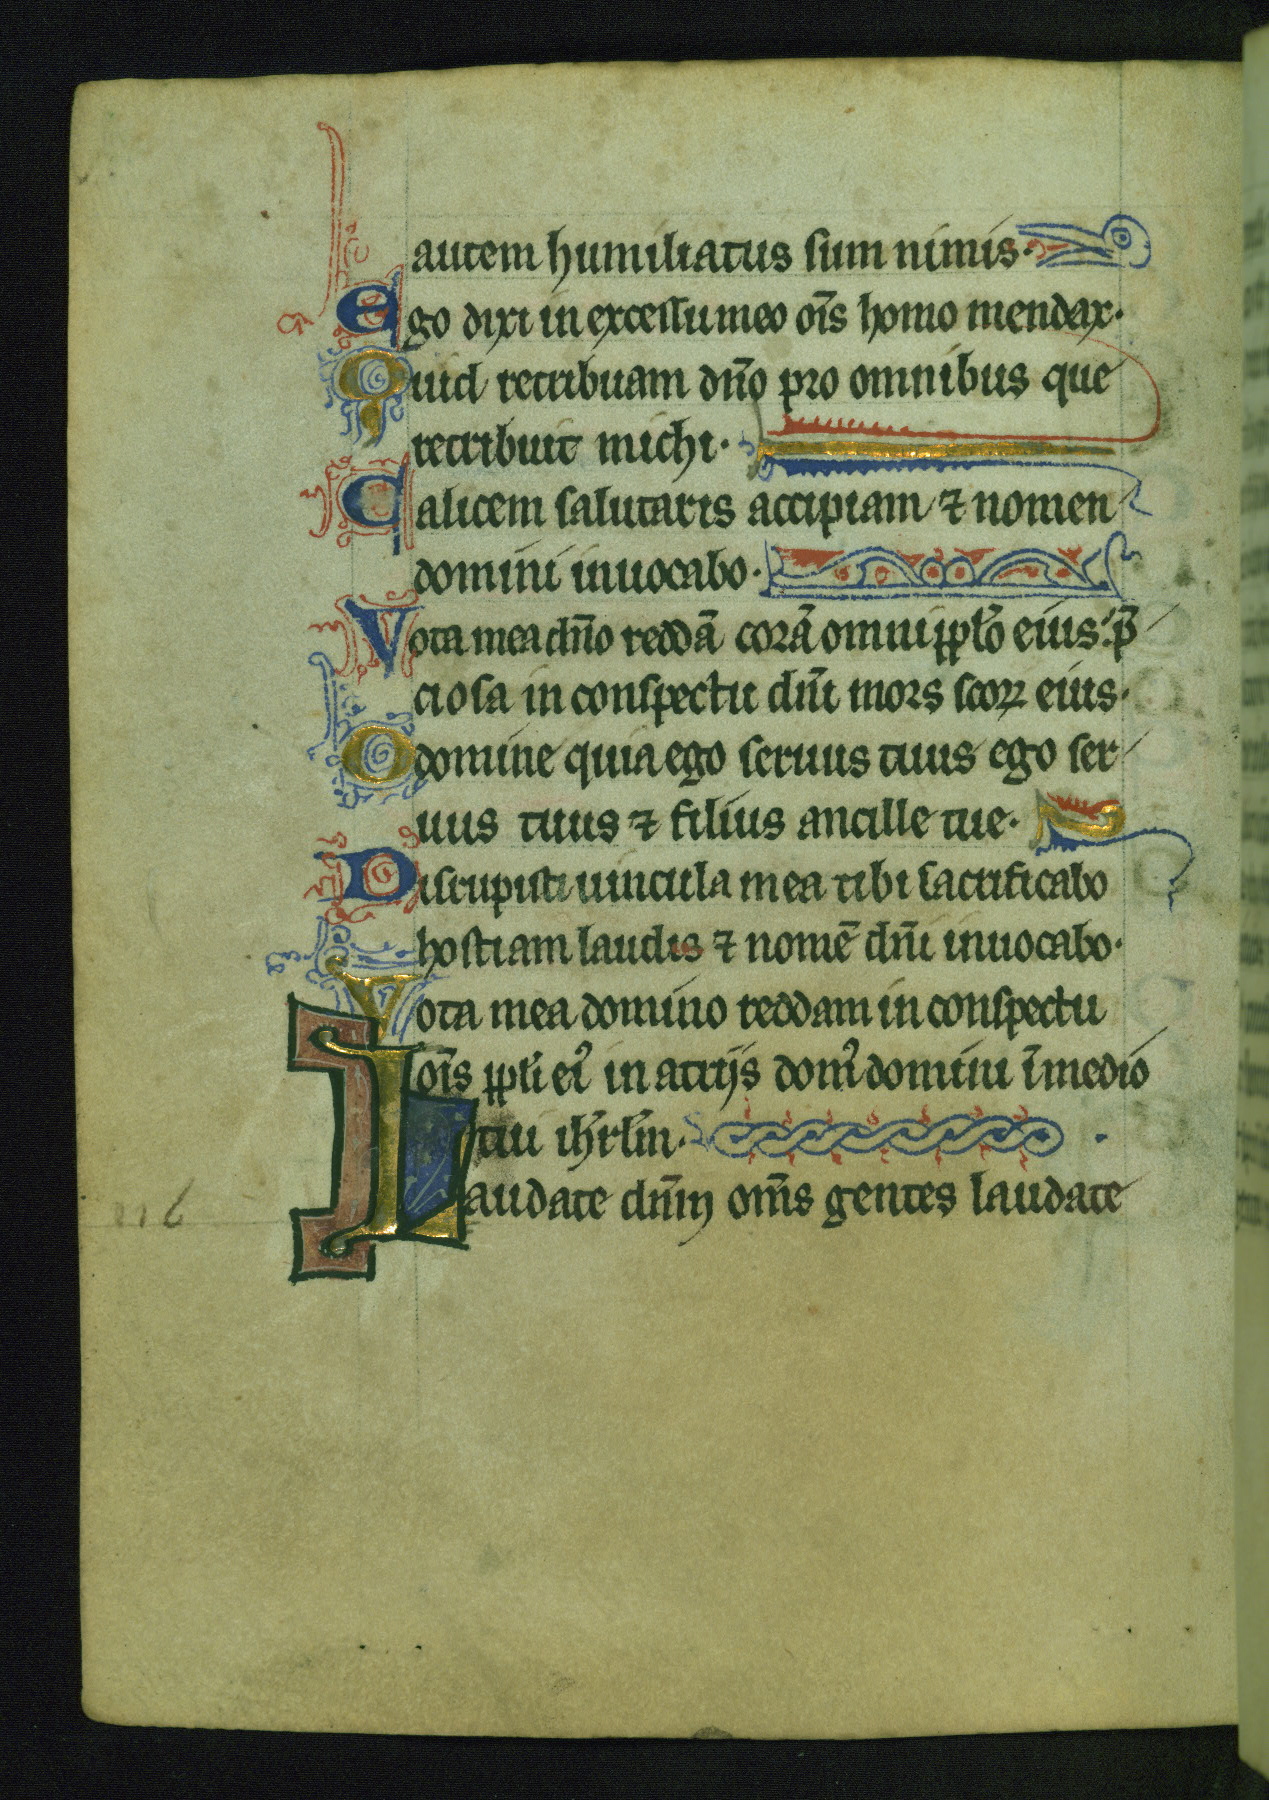 autem humiliatus sum nimis·
Ego dixi in excessu meo oīs homo mendax·
Quid retribuam dño pro omnibus que
retribuit michi·
Calicem salutaris accipiam ⁊ nomen
domini inuocabo·
Vota mea dño reddā corā omni pplo eius: p̄
ciosa in conspectu dñi mors scorꝝ eius·
O domine quia ego seruus tuus ego ser
uus tuus ⁊ filius ancille tue·
Dirrupisti uincula mea tibi sacrificabo
hostiam laudis ⁊ nomē dñi inuocabo·
Vota mea domino reddam in conspectu
oīs ppli ei᾿ in atrijs dom᾿ domini ī medio
tui ihrlm·
Laudate dñm om̄s gentes laudate